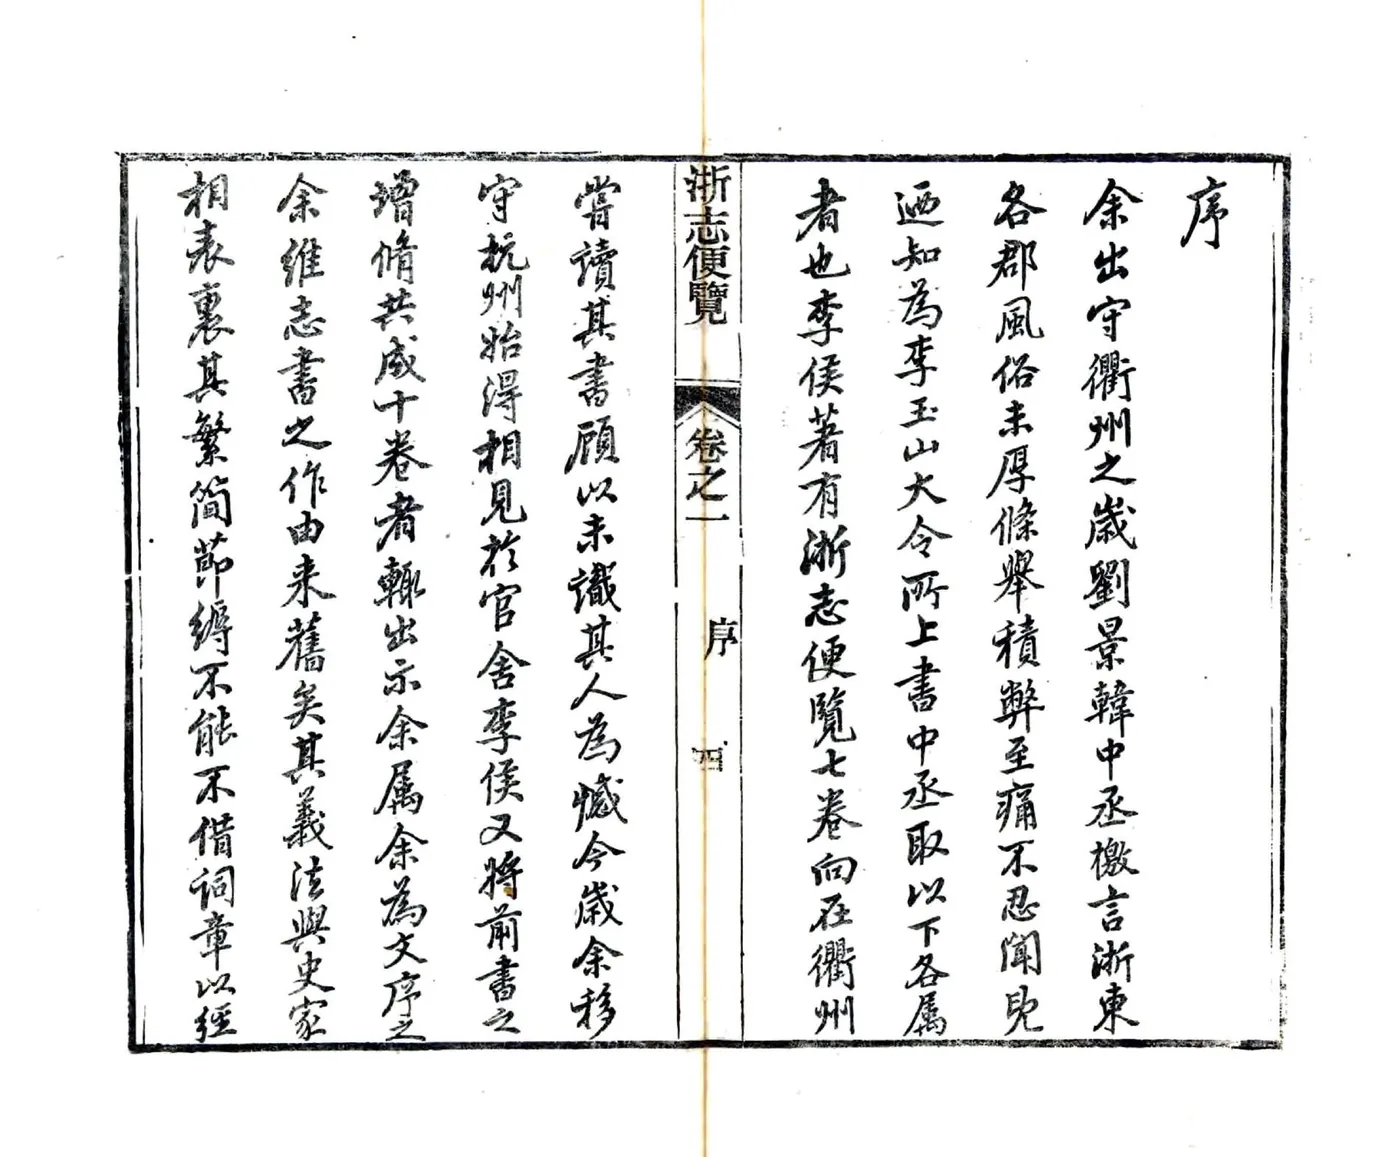 序
余出守衢州之歲劉景韓中丞檄言浙東
各郡風俗未厚條舉積弊至痛不忍聞見
迺知為李玉山大令所上書中丞取以下各属
者也李侯著有浙志便覽七卷向在衢州
浙志便覽
卷之一
序
四
嘗讀其書顧以未識其人為憾今歲余移
守杭州始得相見於官舍李侯又將前書之
增脩共成十卷者輒出示余属余為文序之
余維志書之作由来舊矣其義法與史家
相表裏其繁简節縟不能不借词章以經